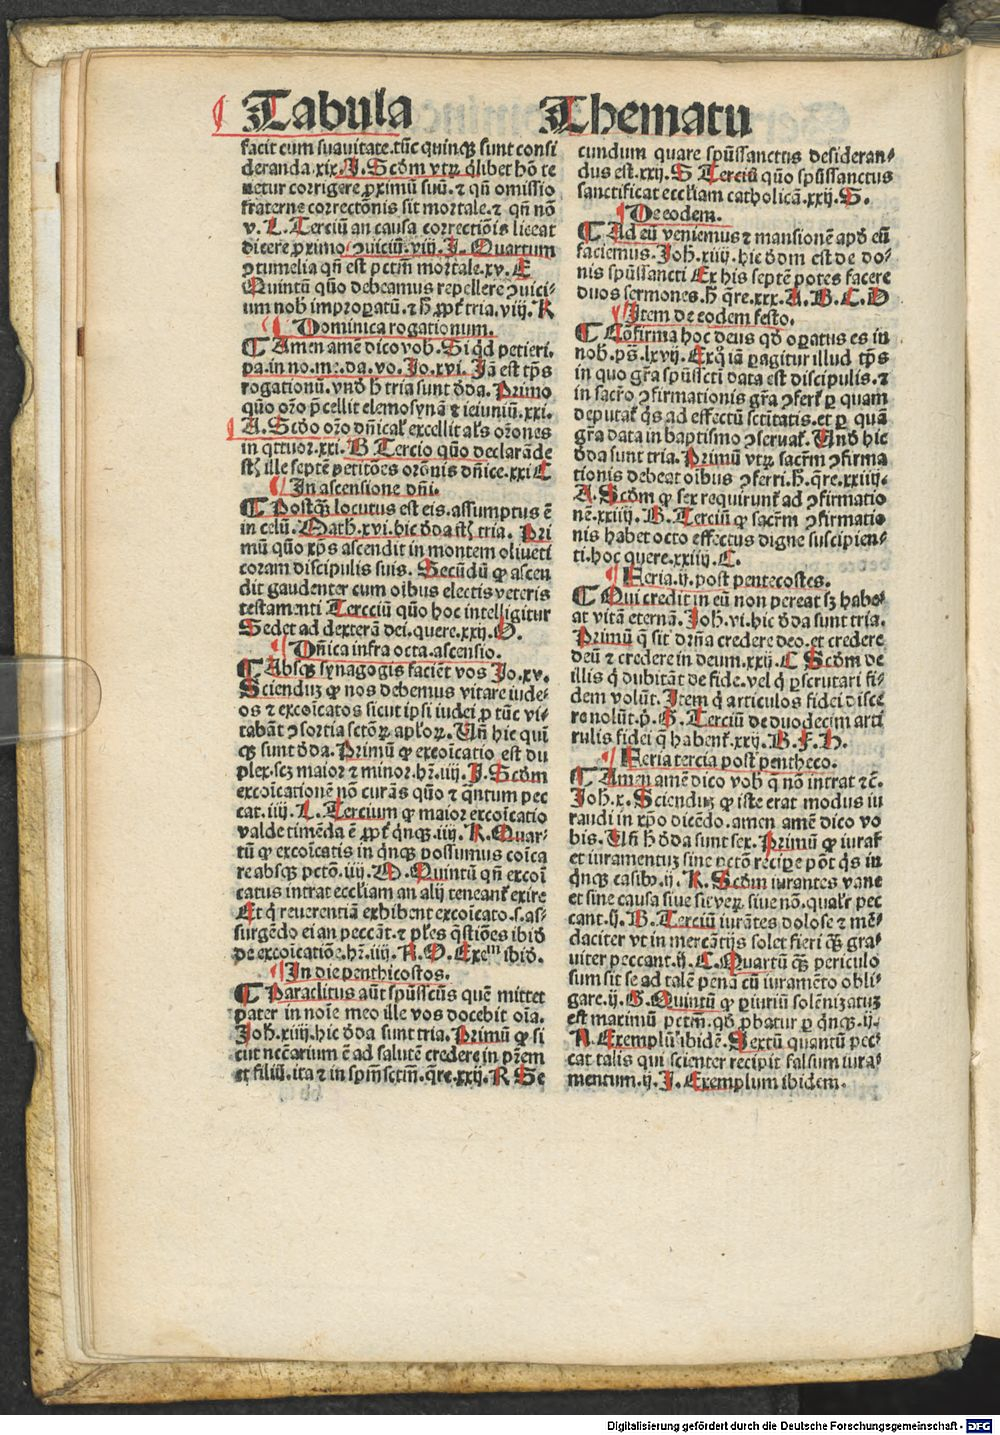 Tabula Thematū
facit cum suauitate. tūc quinqꝫ sunt consi
deranda. xix. J. Scďm vtrꝫ qlibet hō te
netur corrigere ꝓximū suū. ⁊ qn̄ omissio
fraterne correctōnis sit mortale. ⁊ qn̄ nō
v. L. Terciū an causa correctiōis liceat
dicere ꝓximo ꝯuiciū. viij. J. Quartum
ꝯtumelia qn̄ est pctm̄ mortale. xv. E
Quintū quō debeamus repellere ꝯuici-
um nob̄ improꝑatū. ⁊ h̄ ꝓpt̄ tria. viij. K
Dominica rogationum.
¶ Amen amē dico vob. Si qd petieri.
pa. in no. me. da. vo. Jo. xvi. Jā est tp̄s
rogationū. vnō h̄ tria sunt ōda. Primo
quō orō p̄cellit elemosynā ⁊ ieiuniū. xxi.
A. Scōo orō dn̄icaƚ excellit aƚs orōnes
in qttuor. xxi. B Tercio quō declarāde
st̄ ille septē petitōes orōnis dn̄ice. xxi C
In ascensione dn̄i.
¶ Postqꝫ locutus est eis. assumptus ē
in celū. Math. xvi. hic ōda st̄ tria. Pri
mū quō xp̄s ascendit in montem oliueti
coram discipulis suis. Secūdū ꝙ ascen
dit gaudenter cum oibus electis veteris
testamenti Tercciū quō hoc intelligitur
Sedet ad dexterā dei. quere. xxij. O.
Dn̄ica infra octa. ascensio.
¶ Absqꝫ synagogis faciēt vos Jo. xv.
Scienduꝫ ꝙ nos debemus vitare iude-
os ⁊ excoīcatos sicut ipsi iudei ꝑ tūc vi-
tabāt ꝯsortia sctōꝝ apƚoꝝ. Un̄ hic qui
qꝫ sunt ōda. Primū ꝙ excoīcatio est du
plex. scꝫ maior ⁊ minor. hꝫ. iiij. J. Scďm
excoīcationē nō curās quō ⁊ qntum pec
cat. iiij. L. Tercium ꝙ maior excoīcatio
valde timēda ē ꝓpt̄ qnqꝫ. iiij. K. Quar-
tū ꝙ excoīcatis in qnqꝫ possumus coīca
re absqꝫ pctō. iiij. M. Quintū qn̄ excoī
catus intrat eccƚiam an alij teneant̄ exire
Et q reuerentiā exhibent excoīcato. s. as-
surgēdo ei an peccāt. ⁊ pƚes qstiōes ibiď
de excoīcatiōe. hꝫ. iiij. N. O. Exem ibiď.
In die penthicostos.
¶ Paraclitus aūt sp̄ūsscūs quē mittet
pater in noīe meo ille vos docebit oīa.
Joh. xiiij. hic ōda sunt tria. Primū ꝙ si
cut necēarium ē ad salutē credere in pꝫem
et filiū. ita ⁊ in spm̄ sctm̄. qre. xxij. R Se
cundum quare sp̄ūssanctus desideran-
dus est. xxij. S Terciū quō sp̄ūssanctus
sanctificat eccƚiam catholicā. xxij. S.
De eodem.
¶ Ad eū veniemus ⁊ mansionē apď eū
faciemus. Joh. xiiij. hic ōdm est de do-
nis sp̄ūssancti Ex his septē potes facere
duos sermones. h̄ qre. xxx. A. B. C. D
Item de eodem festo.
¶ Cōfirma hoc deus qď oꝑatus es in
nob. pˢ. lxvij. Exq iā ꝑagitur illud tp̄s
in quo gr̄a sp̄ūsscti data est discipulis. ⁊
in sacro ꝯfirmationis gr̄a ꝯfert̄ ꝑ quam
deputat̄ qs ad effectū sctitatis. et ꝑ quā
gr̄a data in baptismo ꝯseruat̄. Unď hic
ōda sunt tria. Primū vtrꝫ sacr̄m ꝯfirma
tionis debeat oibus ꝯferri. h̄. qre. xxiiij.
A. Scďm ꝙ sex requirunt̄ ad ꝯfirmatio
nē. xxiiij. B. Terciū ꝙ sacr̄m ꝯfirmatio
nis habet octo effectus digne suscipien-
ti. hoc quere. xxiiij. C.
Feria. ij. post pentecostes.
¶ Qui credit in eū non pereat sꝫ habe-
at vitā eternā. Joh. vi. hic ōda sunt tria.
Primū q sit dr̄na credere deo. et credere
deū ⁊ credere in deum. xxij. C Scďm de
illis q dubitāt de fide. vel q ꝑscrutari fi-
dem volūt. Item q articulos fidei discē
re nolūt. p. G. Terciū de duodecim arti
culis fidei q habent̄. xxij. B. F. H.
Feria tercia post pentheco.
¶ Amen amē dico vob q nō intrat ⁊c̄.
Joh. x. Sciendūꝫ ꝙ iste erat modus iu
randi in xp̄o dicēdo. amen amē dico vo
bis. Un̄ h̄ ōda sunt sex. Primū ꝙ iurat̄
et iuramentuꝫ sine pctō recipe pōt qs in
qnqꝫ casibꝫ. ij. K. Scďm iurantes vane
et sine causa siue sit verꝫ. siue nō. quaƚr pec
cant. ij. B. Terciū iurātes dolose ⁊ mē-
daciter vt in mercātijs solet fieri qꝫ gra-
uiter peccant. ij. C. Quartū qꝫ periculo
sum sit se ad talē penā cū iuramēto obli-
gare. ij. G. Quintū ꝙ ꝑiuriū solēnizatuꝫ
est maximū pctm̄. qď ꝓbatur ꝑ qnqꝫ. ij.
A. Exemplū ibidē. Sextū quantū pec-
cat talis qui scienter recipit falsum iura-
mentum. ij. J. Exemplum ibidem.
Digitalisierung gefördert durch die Deutsche Forschungsgemeinschaft - DFG